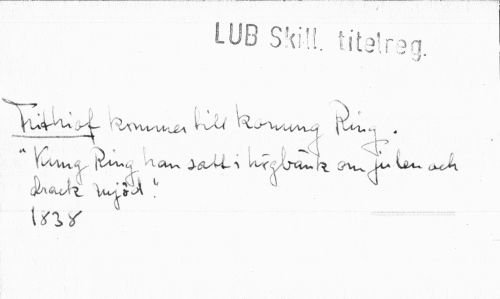 LUB Skill. titelreg.
Frithiof kommer till konung Ring.
"Kung Ring han satt i högbänk om julen och
drack mjöd."
1838